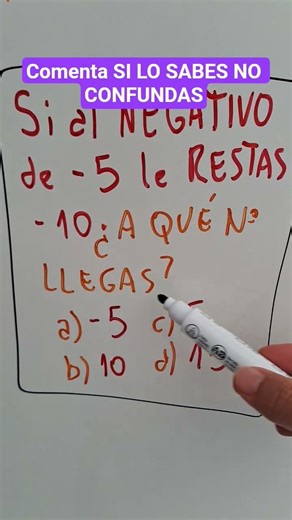 Comenta SI LO SABES NO
CONFUNDAS
Si al NEGATIVO
de -5 le RESTAS
-10 ¿A QUÉ Nº
LLEGAS?
a) -5 c)
b) 10 d) 15